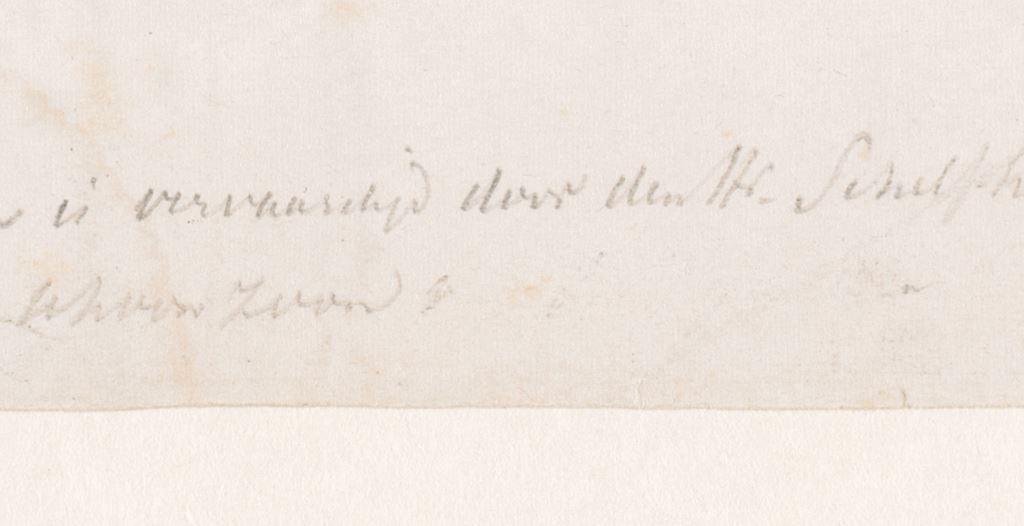 is vervaardigd door den Hr. Schelfh
schoonzoon